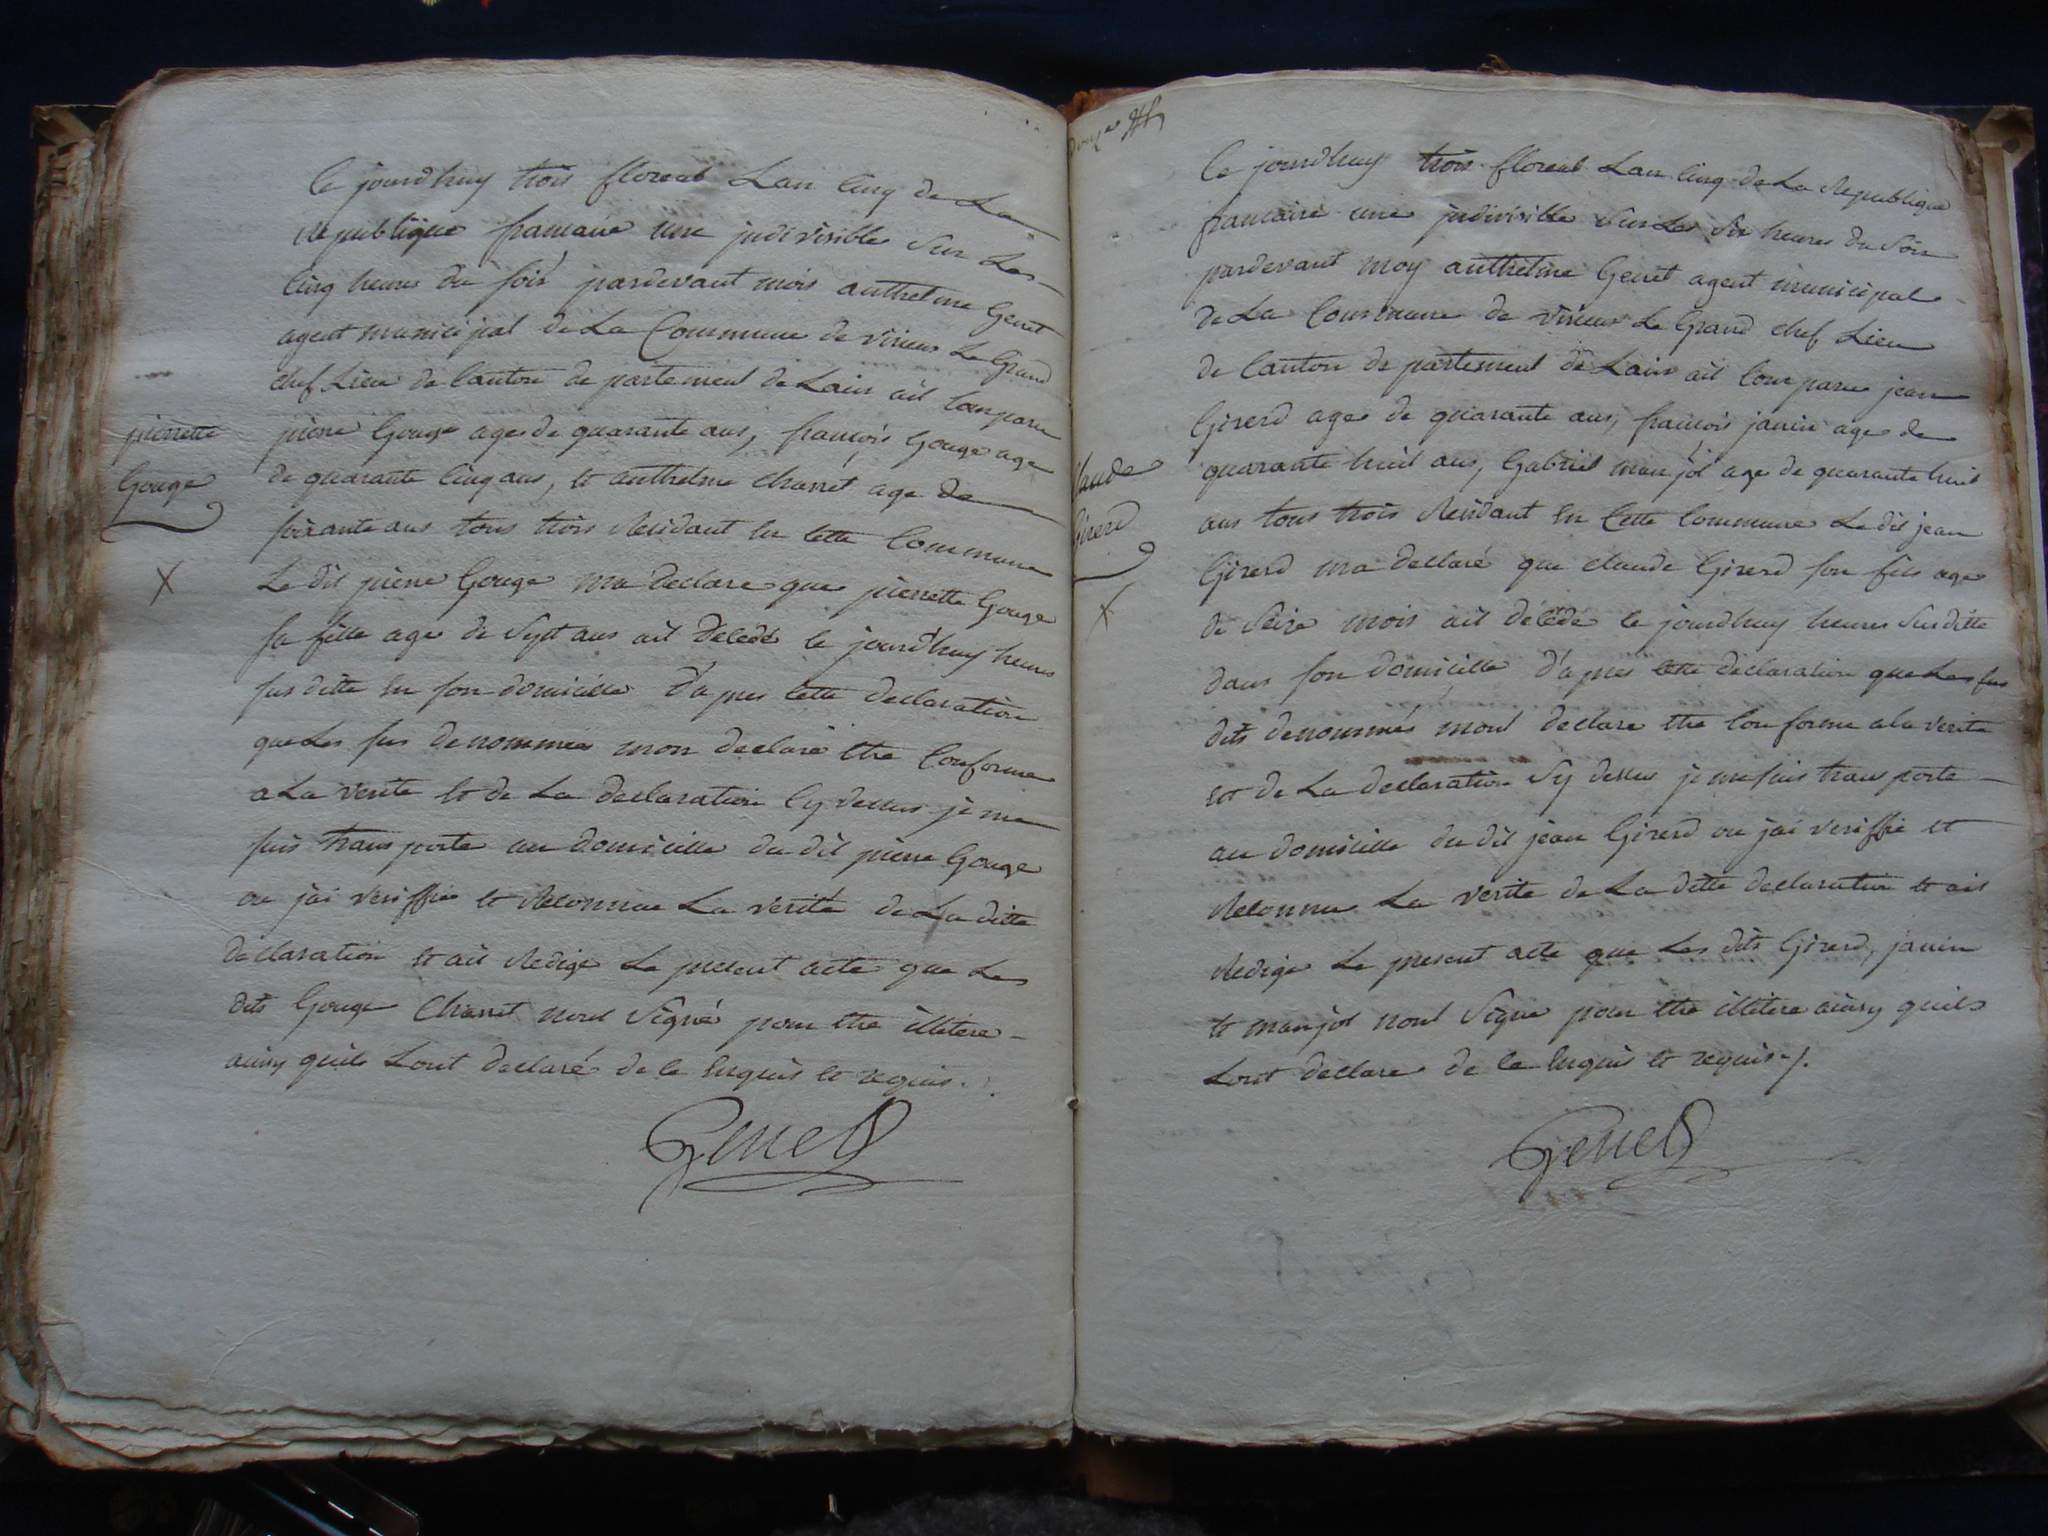 Ce jourdhuy trois floreal Lan Cinq de La
Republique francaise une jndivisible Sur Les
Cinq heures du soir pardevant mois anthelme Genet
agent municipal de La Commune de virieux Le Grand
chef Lieu de Canton de partement de Lain ait Comparu
pierre Gouge age de quarante ans, francois Gouge age
de quarante Cinq ans, et anthelme Charret age de
soixante ans tous trois Residant En Cette Commune
Le dit pierre Gouge ma declare que pierrette Gouge
sa fille age de Sept ans ait Décédé le jourd'huy heures
sus ditte En son domicille d'apres Cette declaration
que Les sus denommés mon declaré Etre Conforme
a La verite Et de La declaration Cy dessus je me
suis transporte au domicille du dit pierre Gouge
ou jai veriffie Et Reconnue La verité de La ditte
declaration Et ait Redige Le present acte que Les
dits Gouge Charret nont Signé pour Etre illitere
ainsy quils Lont declaré de Ce Enquis Et requis.
Genet
pierrette
Gouge
X
Ce jourdhuy trois floreal Lan Cinq de La Republique
francaise une jndivisible Sur Les Six heures du Soir
pardevant moy anthelme Genet agent municipal
de La Commune de virieux Le Grand chef Lieu
de Canton de partement de Lain ait Comparu jean
Girerd age de quarante ans, francois janin age de
quarante huit ans, Gabriel manjot age de quarante huit
ans tous trois Residant En Cette Commune Le dit jean
Girerd ma declaré que claude Girerd son fils age
de Seize mois ait décédé le jourdhuy heures Sus ditte
dans son domicille d'apres Cette declaration que Les sus
dits denommés mont declare Etre Conforme a la verite
Et de La declaration Sy dessus je me suis transporte
au domicille du dit jean Girerd ou jai veriffie et
Reconnu La verite de La ditte declaration Et ait
Redige Le present acte que Les dits Girerd, janin
Et manjot nont Signe pour Etre illitere ainsy quils
Lont declare de Ce Enquis Et requis ./.
Genet
Claude
Girerd
X